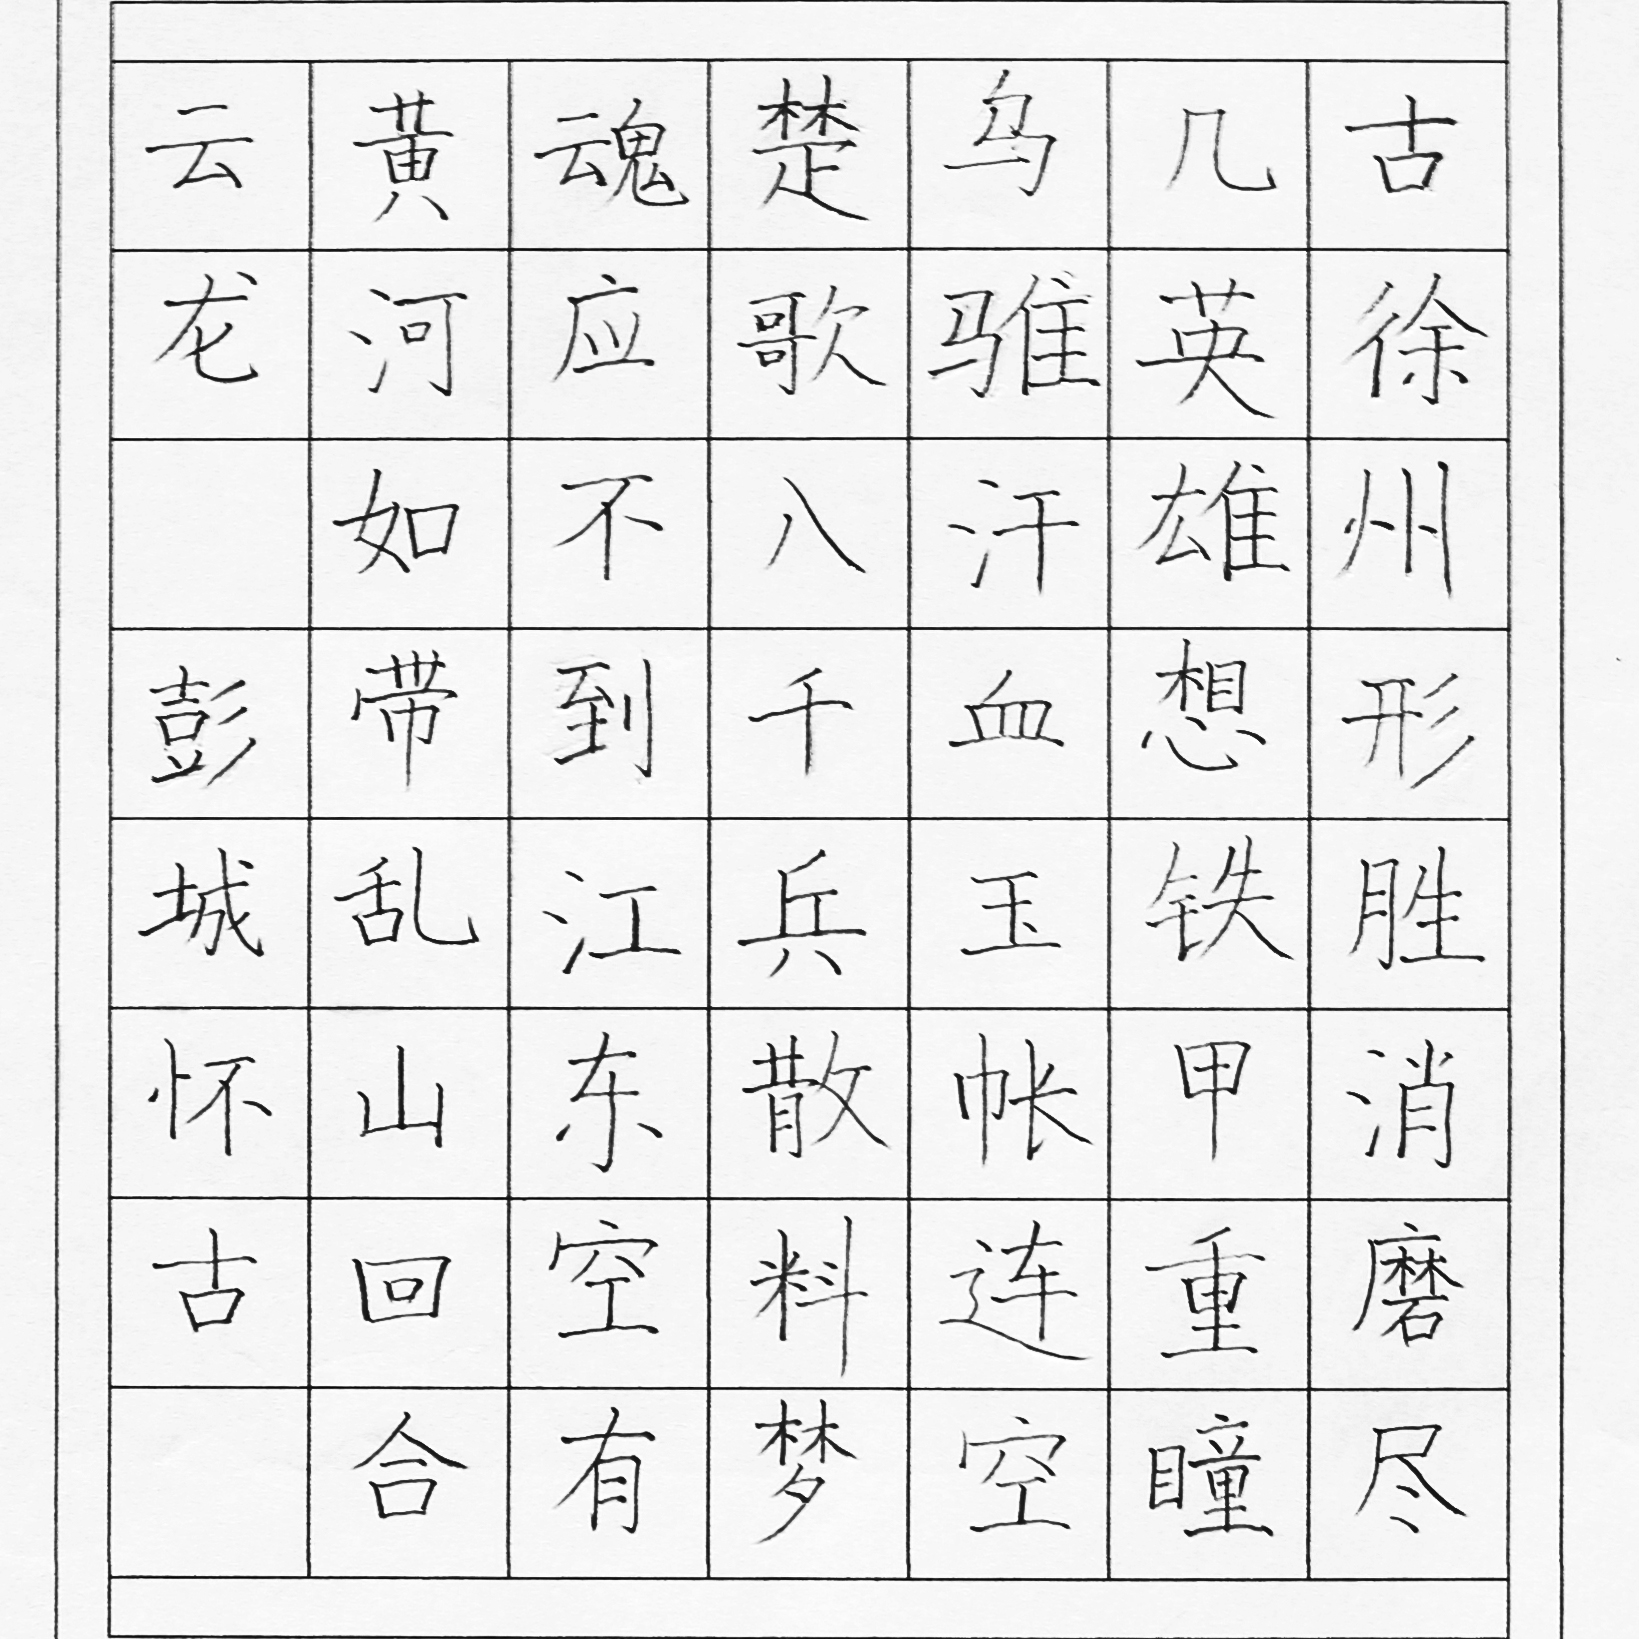 古徐州形胜消磨尽
几英雄想铁甲重瞳
乌骓汗血玉帐连空
楚歌八千兵散料梦
魂应不到江东空有
黄河如带乱山回合
云龙 彭城怀古